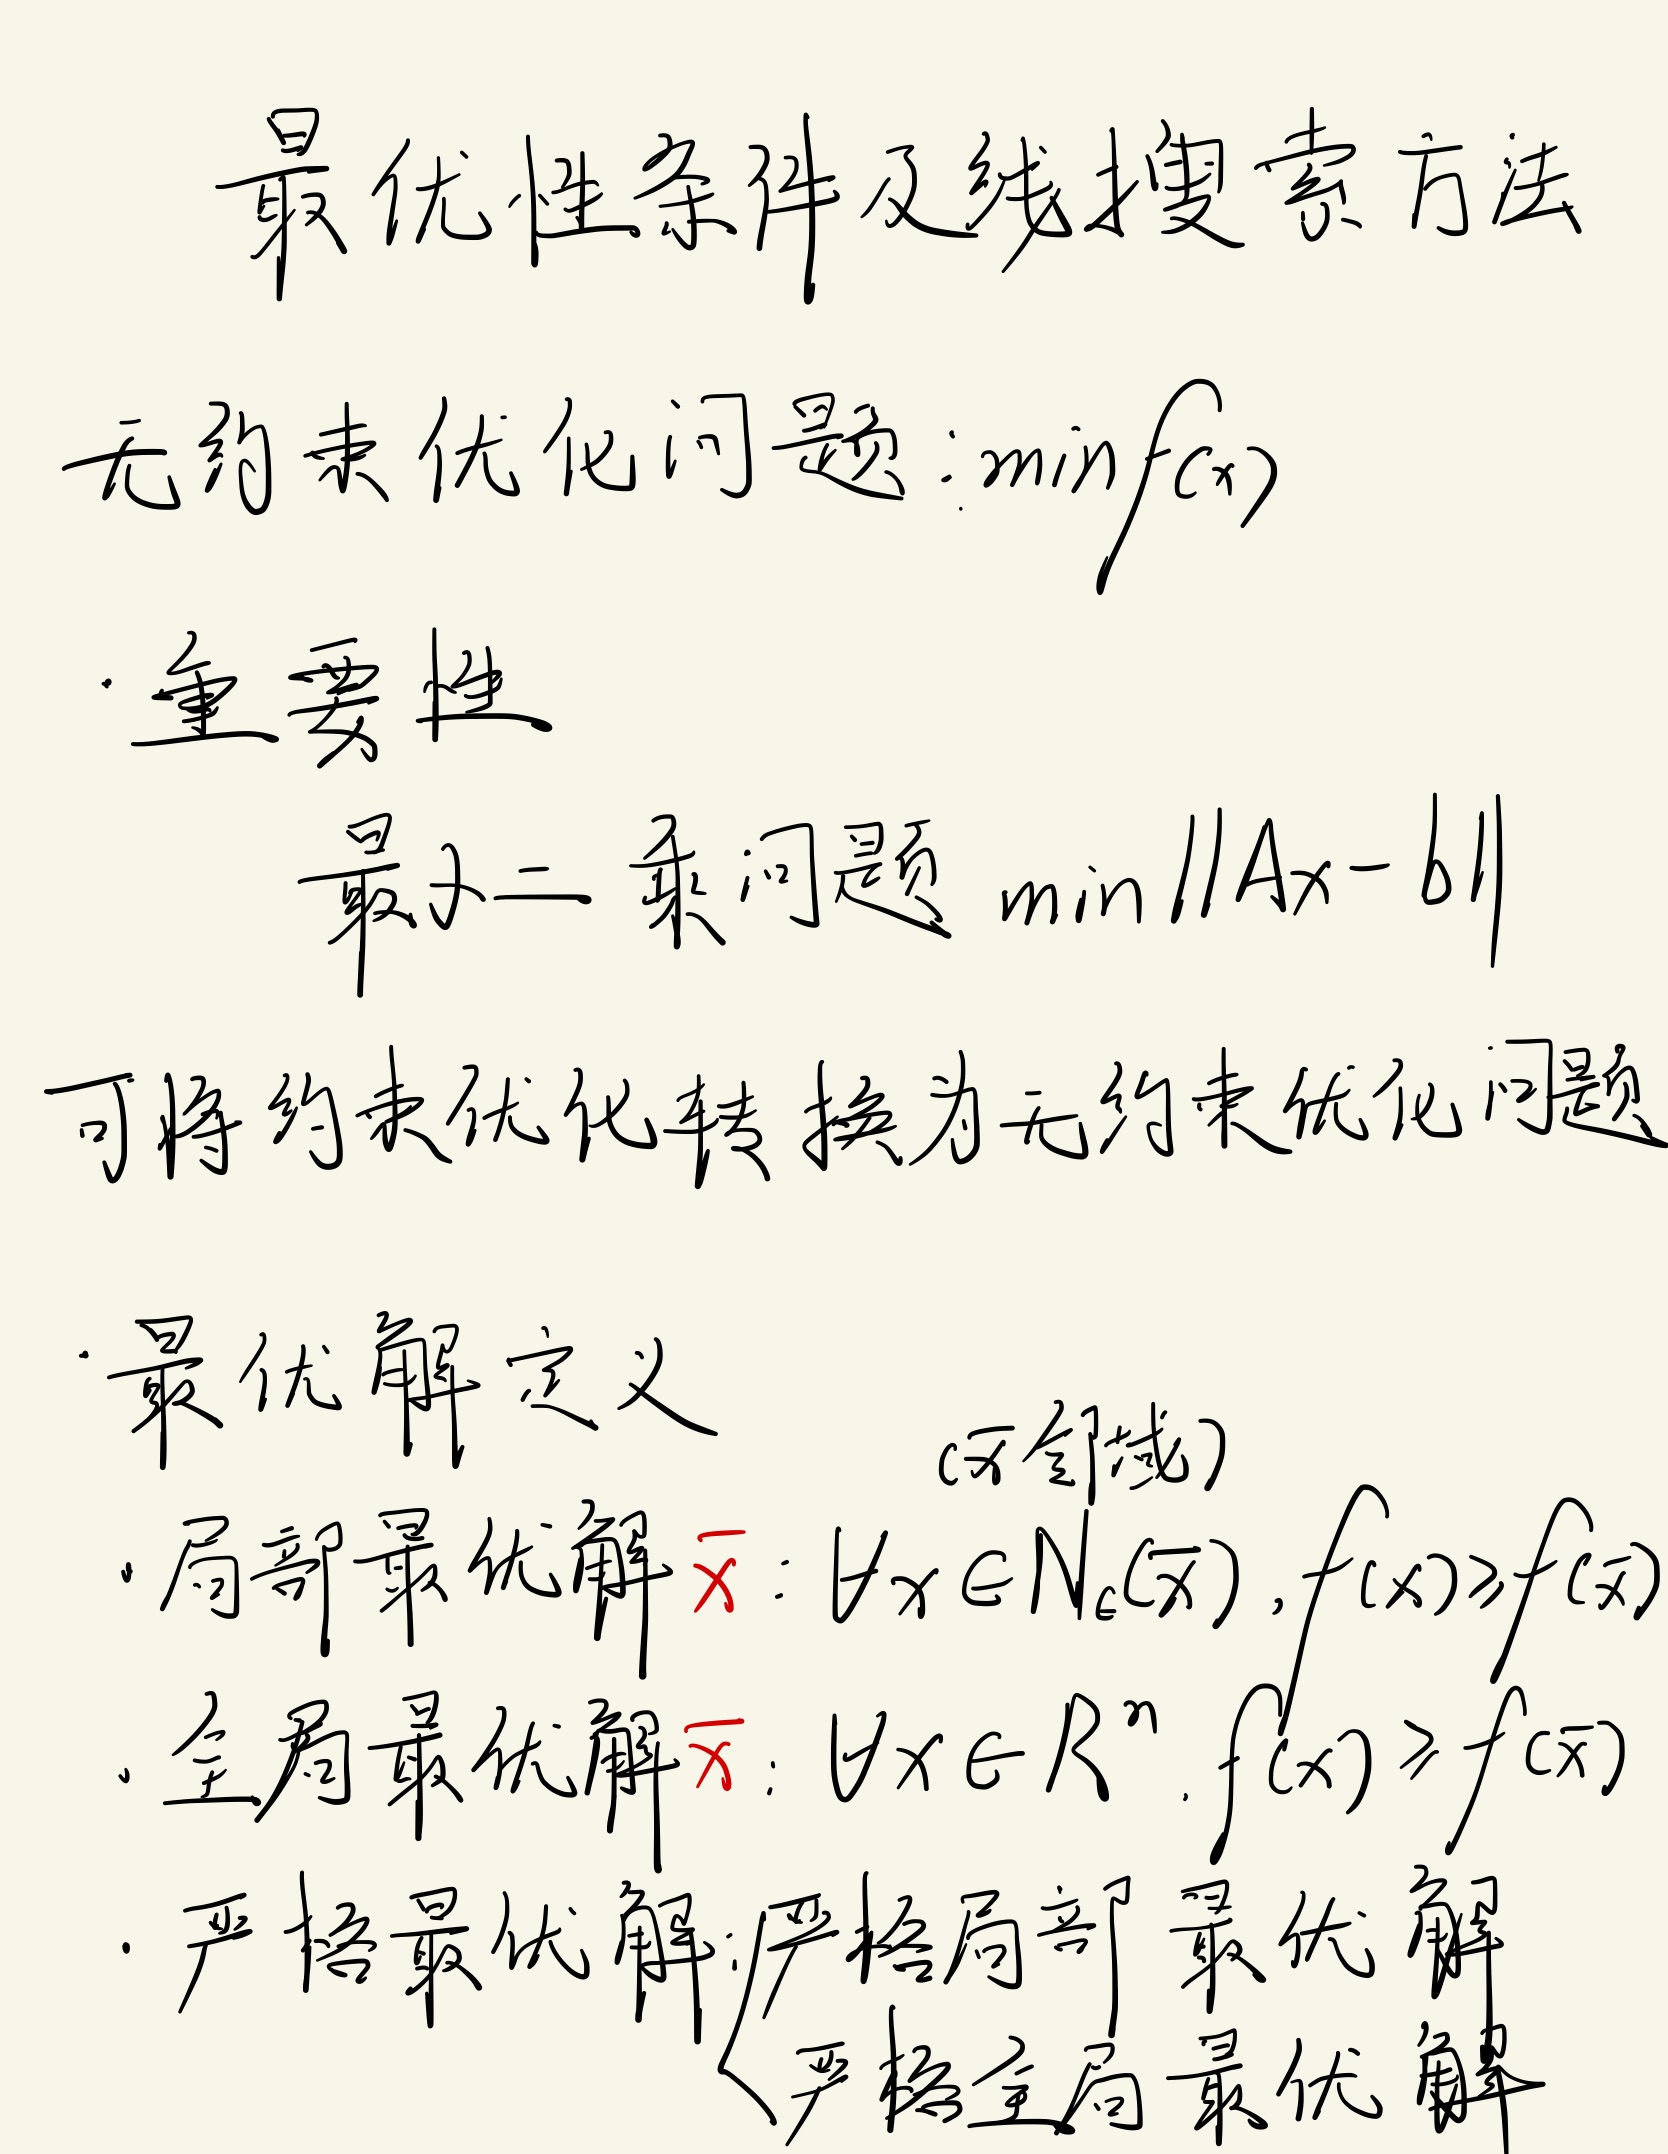 最优性条件及线搜索方法
无约束优化问题:min f(x)
·重要性
最小二乘问题 min ||Ax-b||
可将约束优化转换为无约束优化问题
·最优解定义
(x̄邻域)
·局部最优解x̄: ∀x∈Nε(x̄), f(x)≥f(x̄)
·全局最优解x̄: ∀x∈Rⁿ, f(x)≥f(x̄)
·严格最优解:严格局部最优解
严格全局最优解